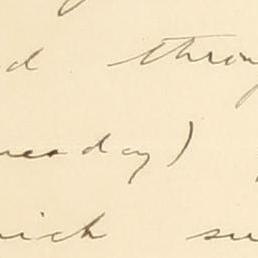 d throu
uesday)
hich su